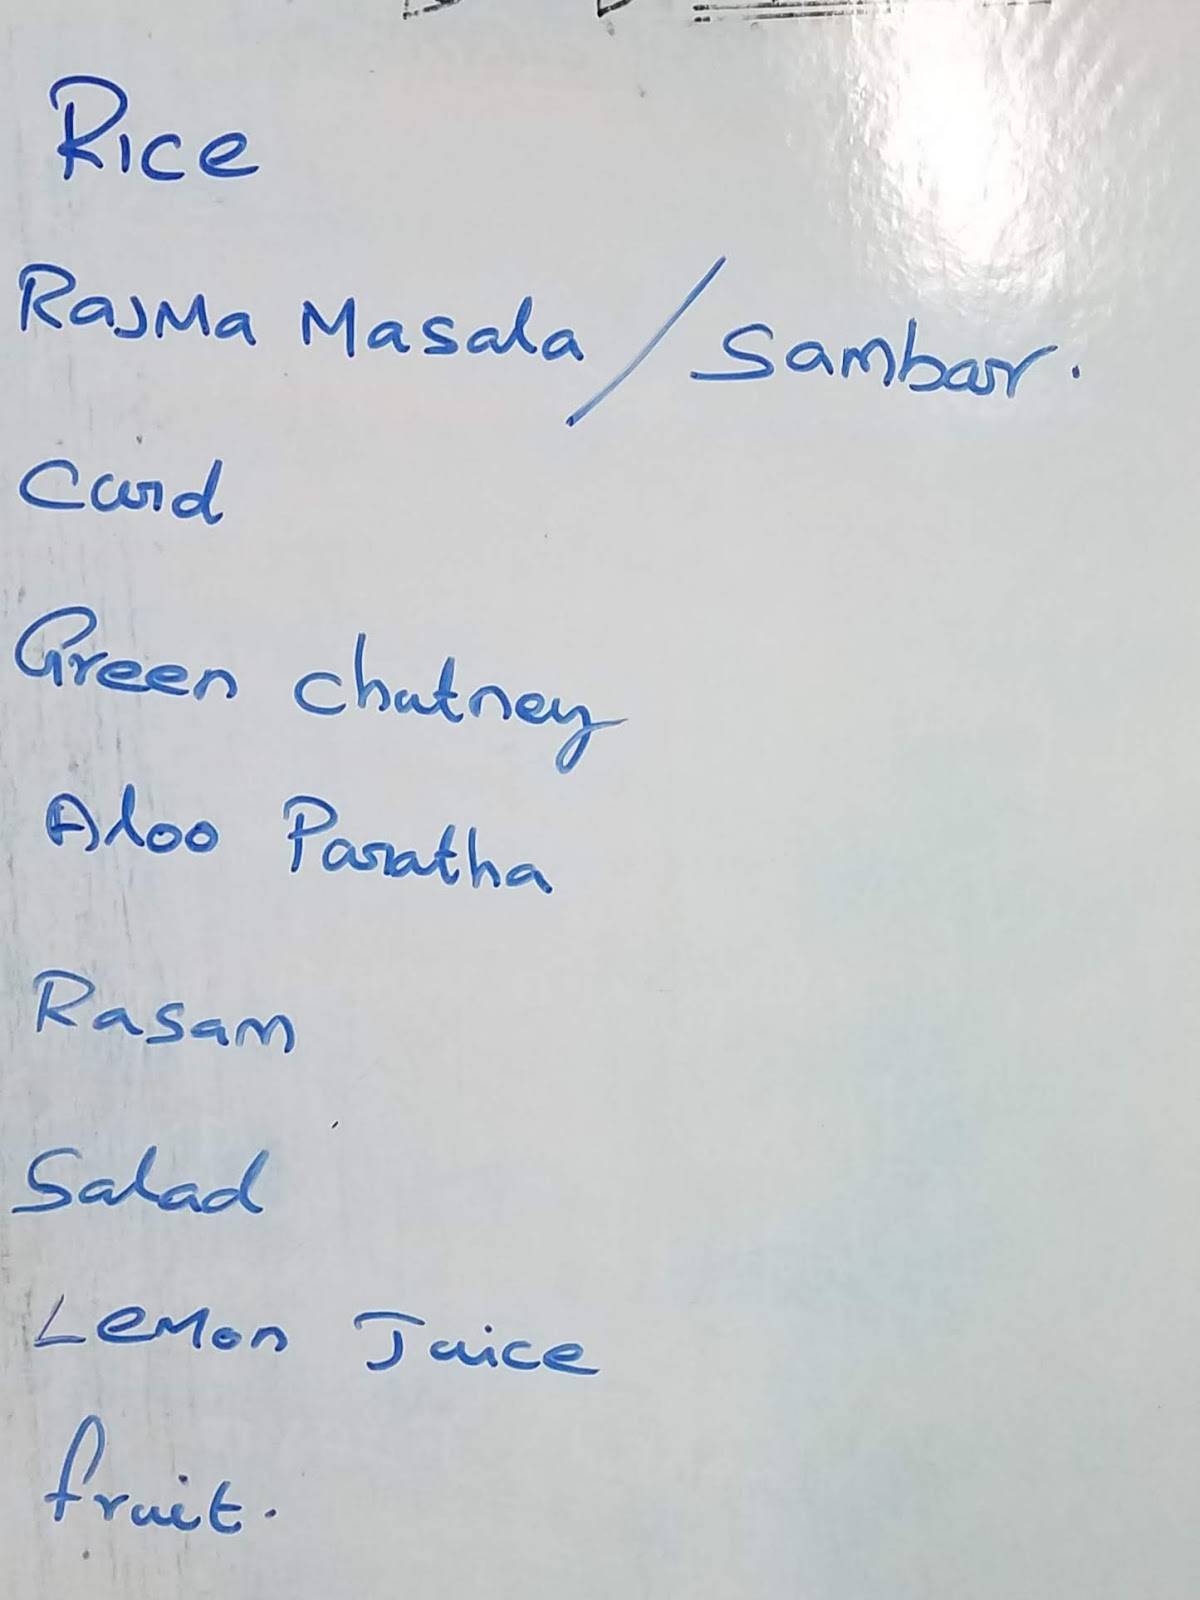 Rice
Rajma Masala / Sambar.
Curd
Green chutney
Aloo Paratha
Rasam
Salad
Lemon Juice
fruit.